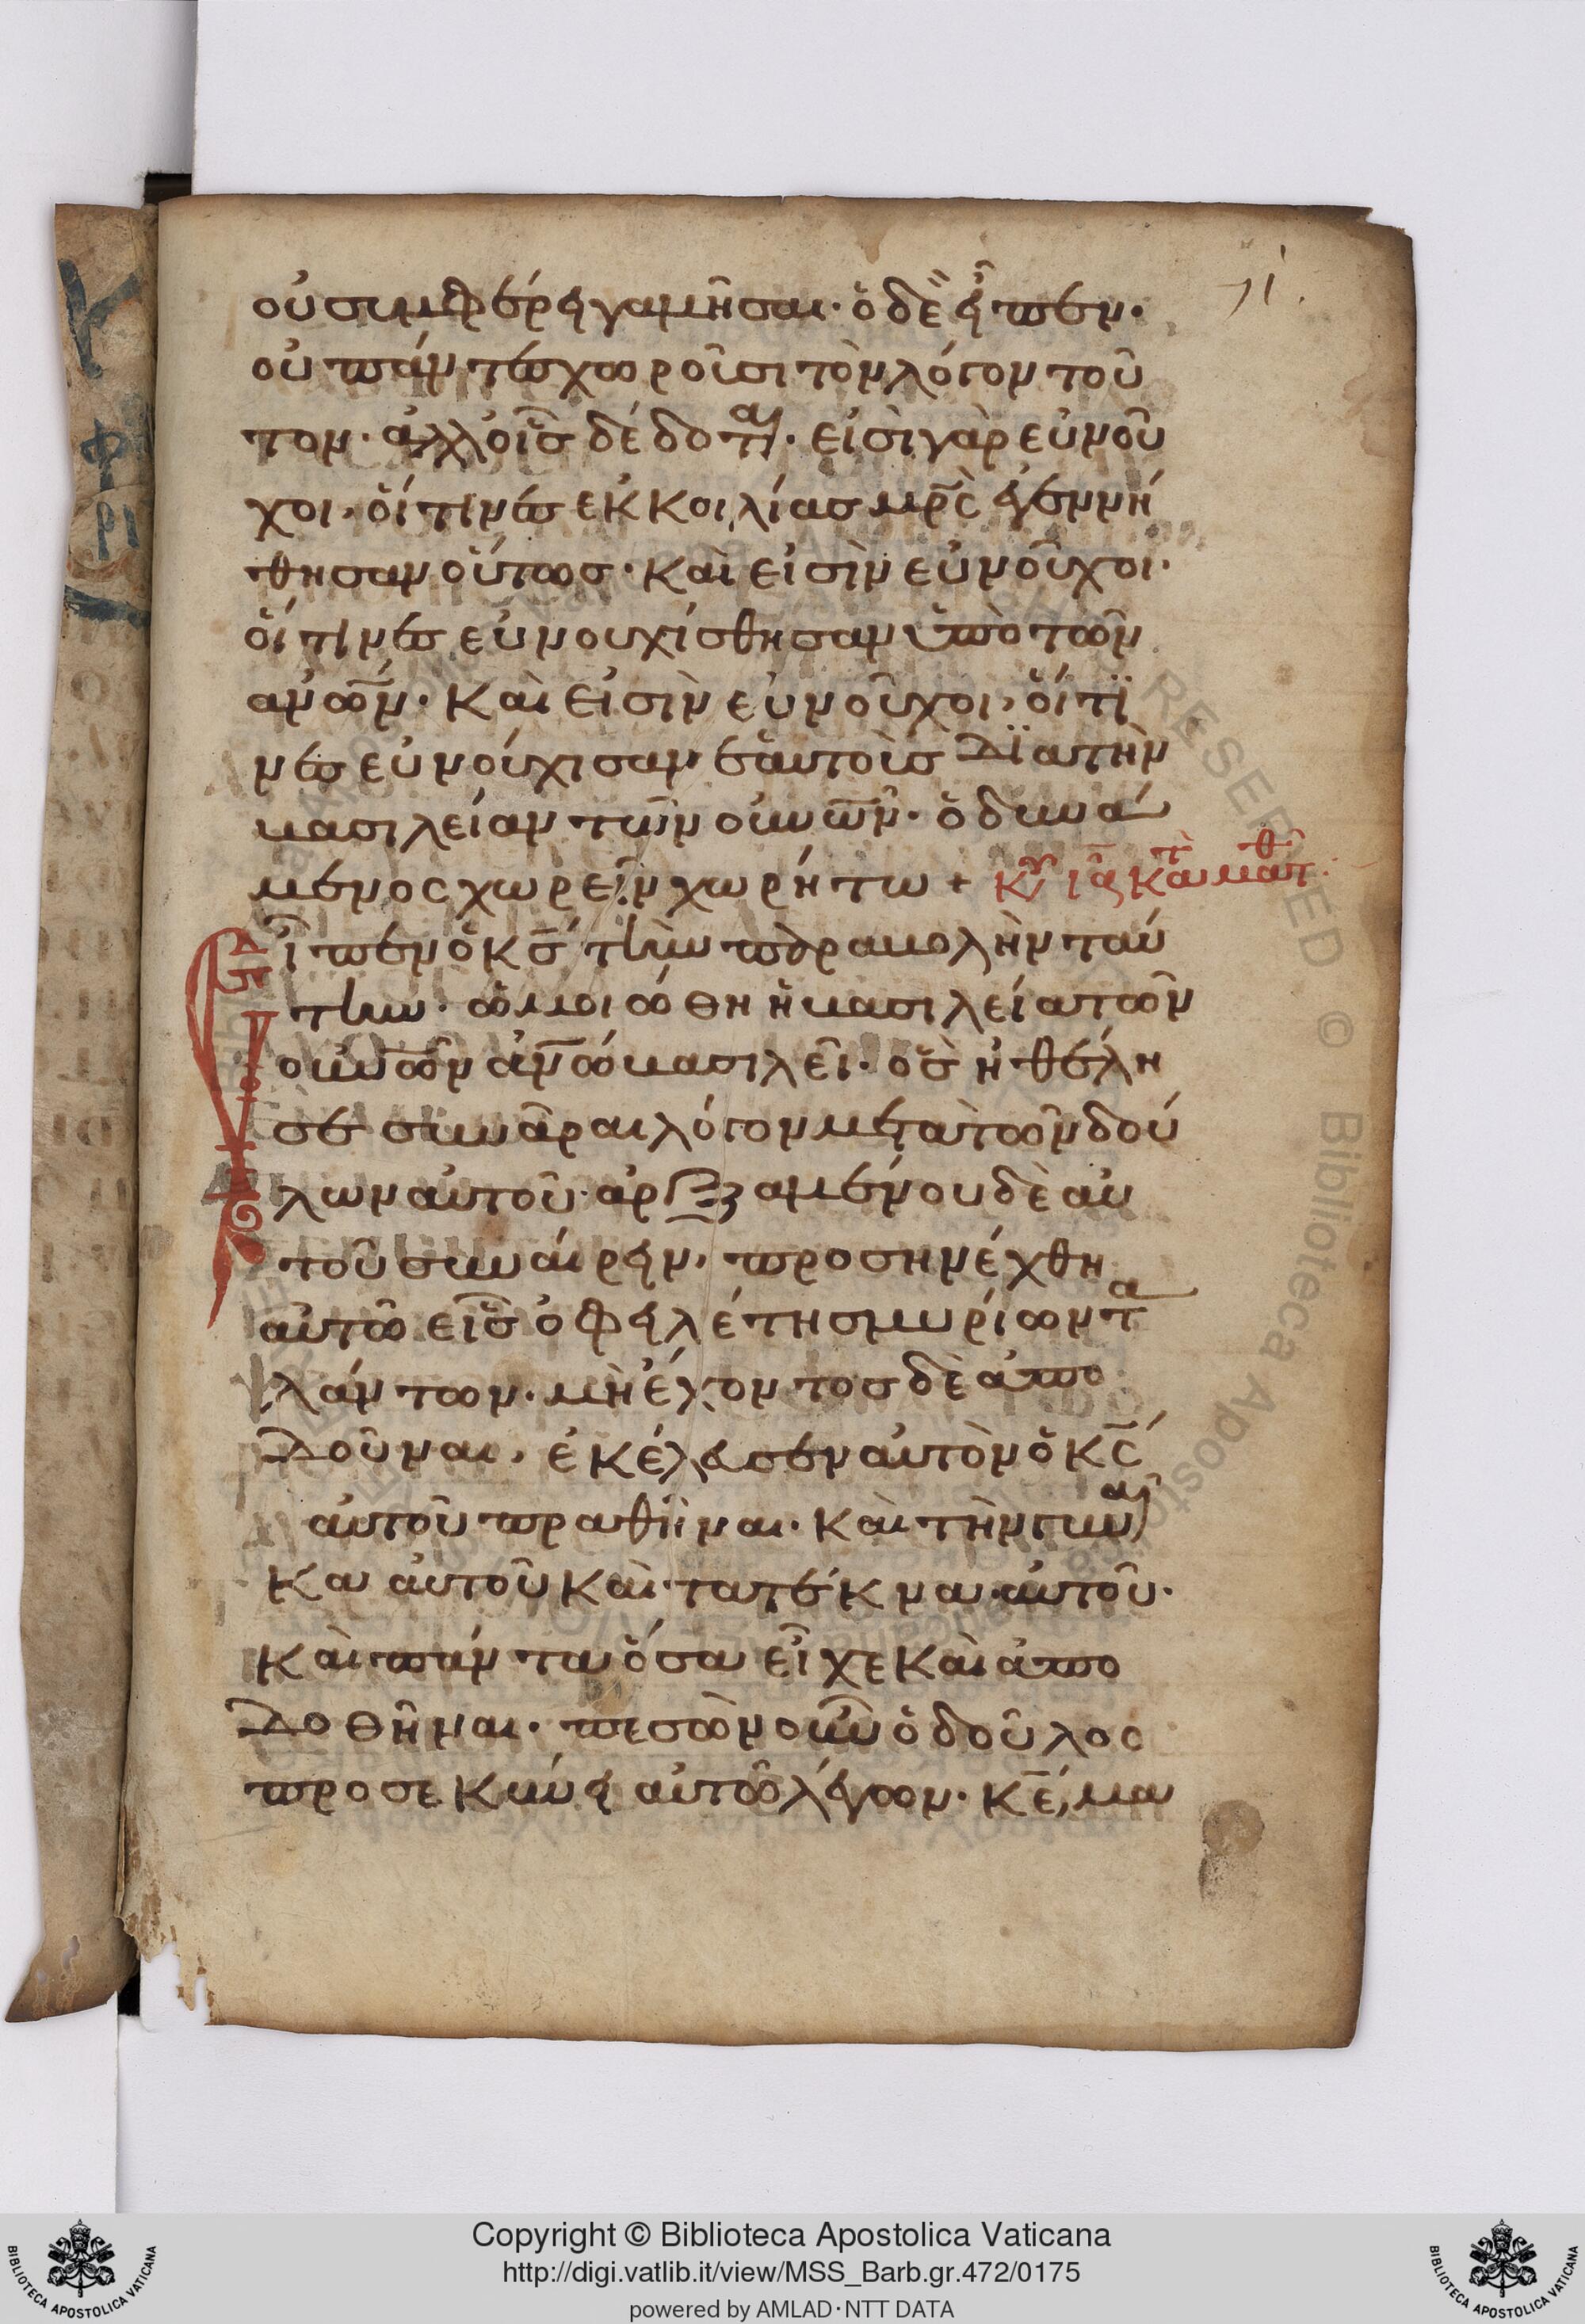 71.
οὐ συμφέρει γαμῆσαι· ὁ δὲ εἶπεν·
οὐ πάντες χωροῦσι τὸν λόγον τοῦ
τον· ἀλλ οἷς δέδοται· εἰσὶ γὰρ εὐνοῦ
χοι, οἵτινες ἐκ κοιλίας μρ̅ς ἐγεννή
θησαν οὕτως· καὶ εἰσὶν εὐνοῦχοι·
οἵτινες εὐνουχίσθησαν ὑπὸ τῶν
αν̅ων· καὶ εἰσὶν εὐνοῦχοι, οἵτι
νες εὐνούχισαν ἑαυτοὺς διὰ τὴν
βασιλείαν τῶν οὐν̅ων· ὁ δυνά
μενος χωρεῖν χωρήτω + Κυ ια κατα ματθ
εἶπεν ὁ κ̅ς τὴν παραβολὴν ταύ
την· ὡμοιώθη ἡ βασιλεία τῶν
οὐν̅ων αν̅ω βασιλεῖ· ὃς ἠθέλη
σε συνᾶραι λόγον μετὰ τῶν δού
λων αὐτοῦ· ἀρξαμένου δὲ αὐ
τοῦ συναίρειν, προσηνέχθη
αὐτῶ εἷς ὀφειλέτης μυρίων τα
λάντων· μὴ ἔχοντος δὲ ἀπο
δοῦναι, ἐκέλευσεν αὐτὸν ὁ κ̅ς
αὐτοῦ πραθῆναι· καὶ τὴν γυναῖ
κα αὐτοῦ καὶ τὰ τέκνα αὐτοῦ·
καὶ πάντα ὅσα εἶχε καὶ ἀπο
δοθῆναι· πεσὼν οὖν ὁ δοῦλος
προσεκύνει αὐτῶ λέγων· κ̅ε, μα
Κ
Φ
ΡΙ
Copyright © Biblioteca Apostolica Vaticana
http://digi.vatlib.it/view/MSS_Barb.gr.472/0175
powered by AMLAD·NTT DATA
BIBLIOTECA APOSTOLICA VATICANA
BIBLIOTECA APOSTOLICA VATICANA